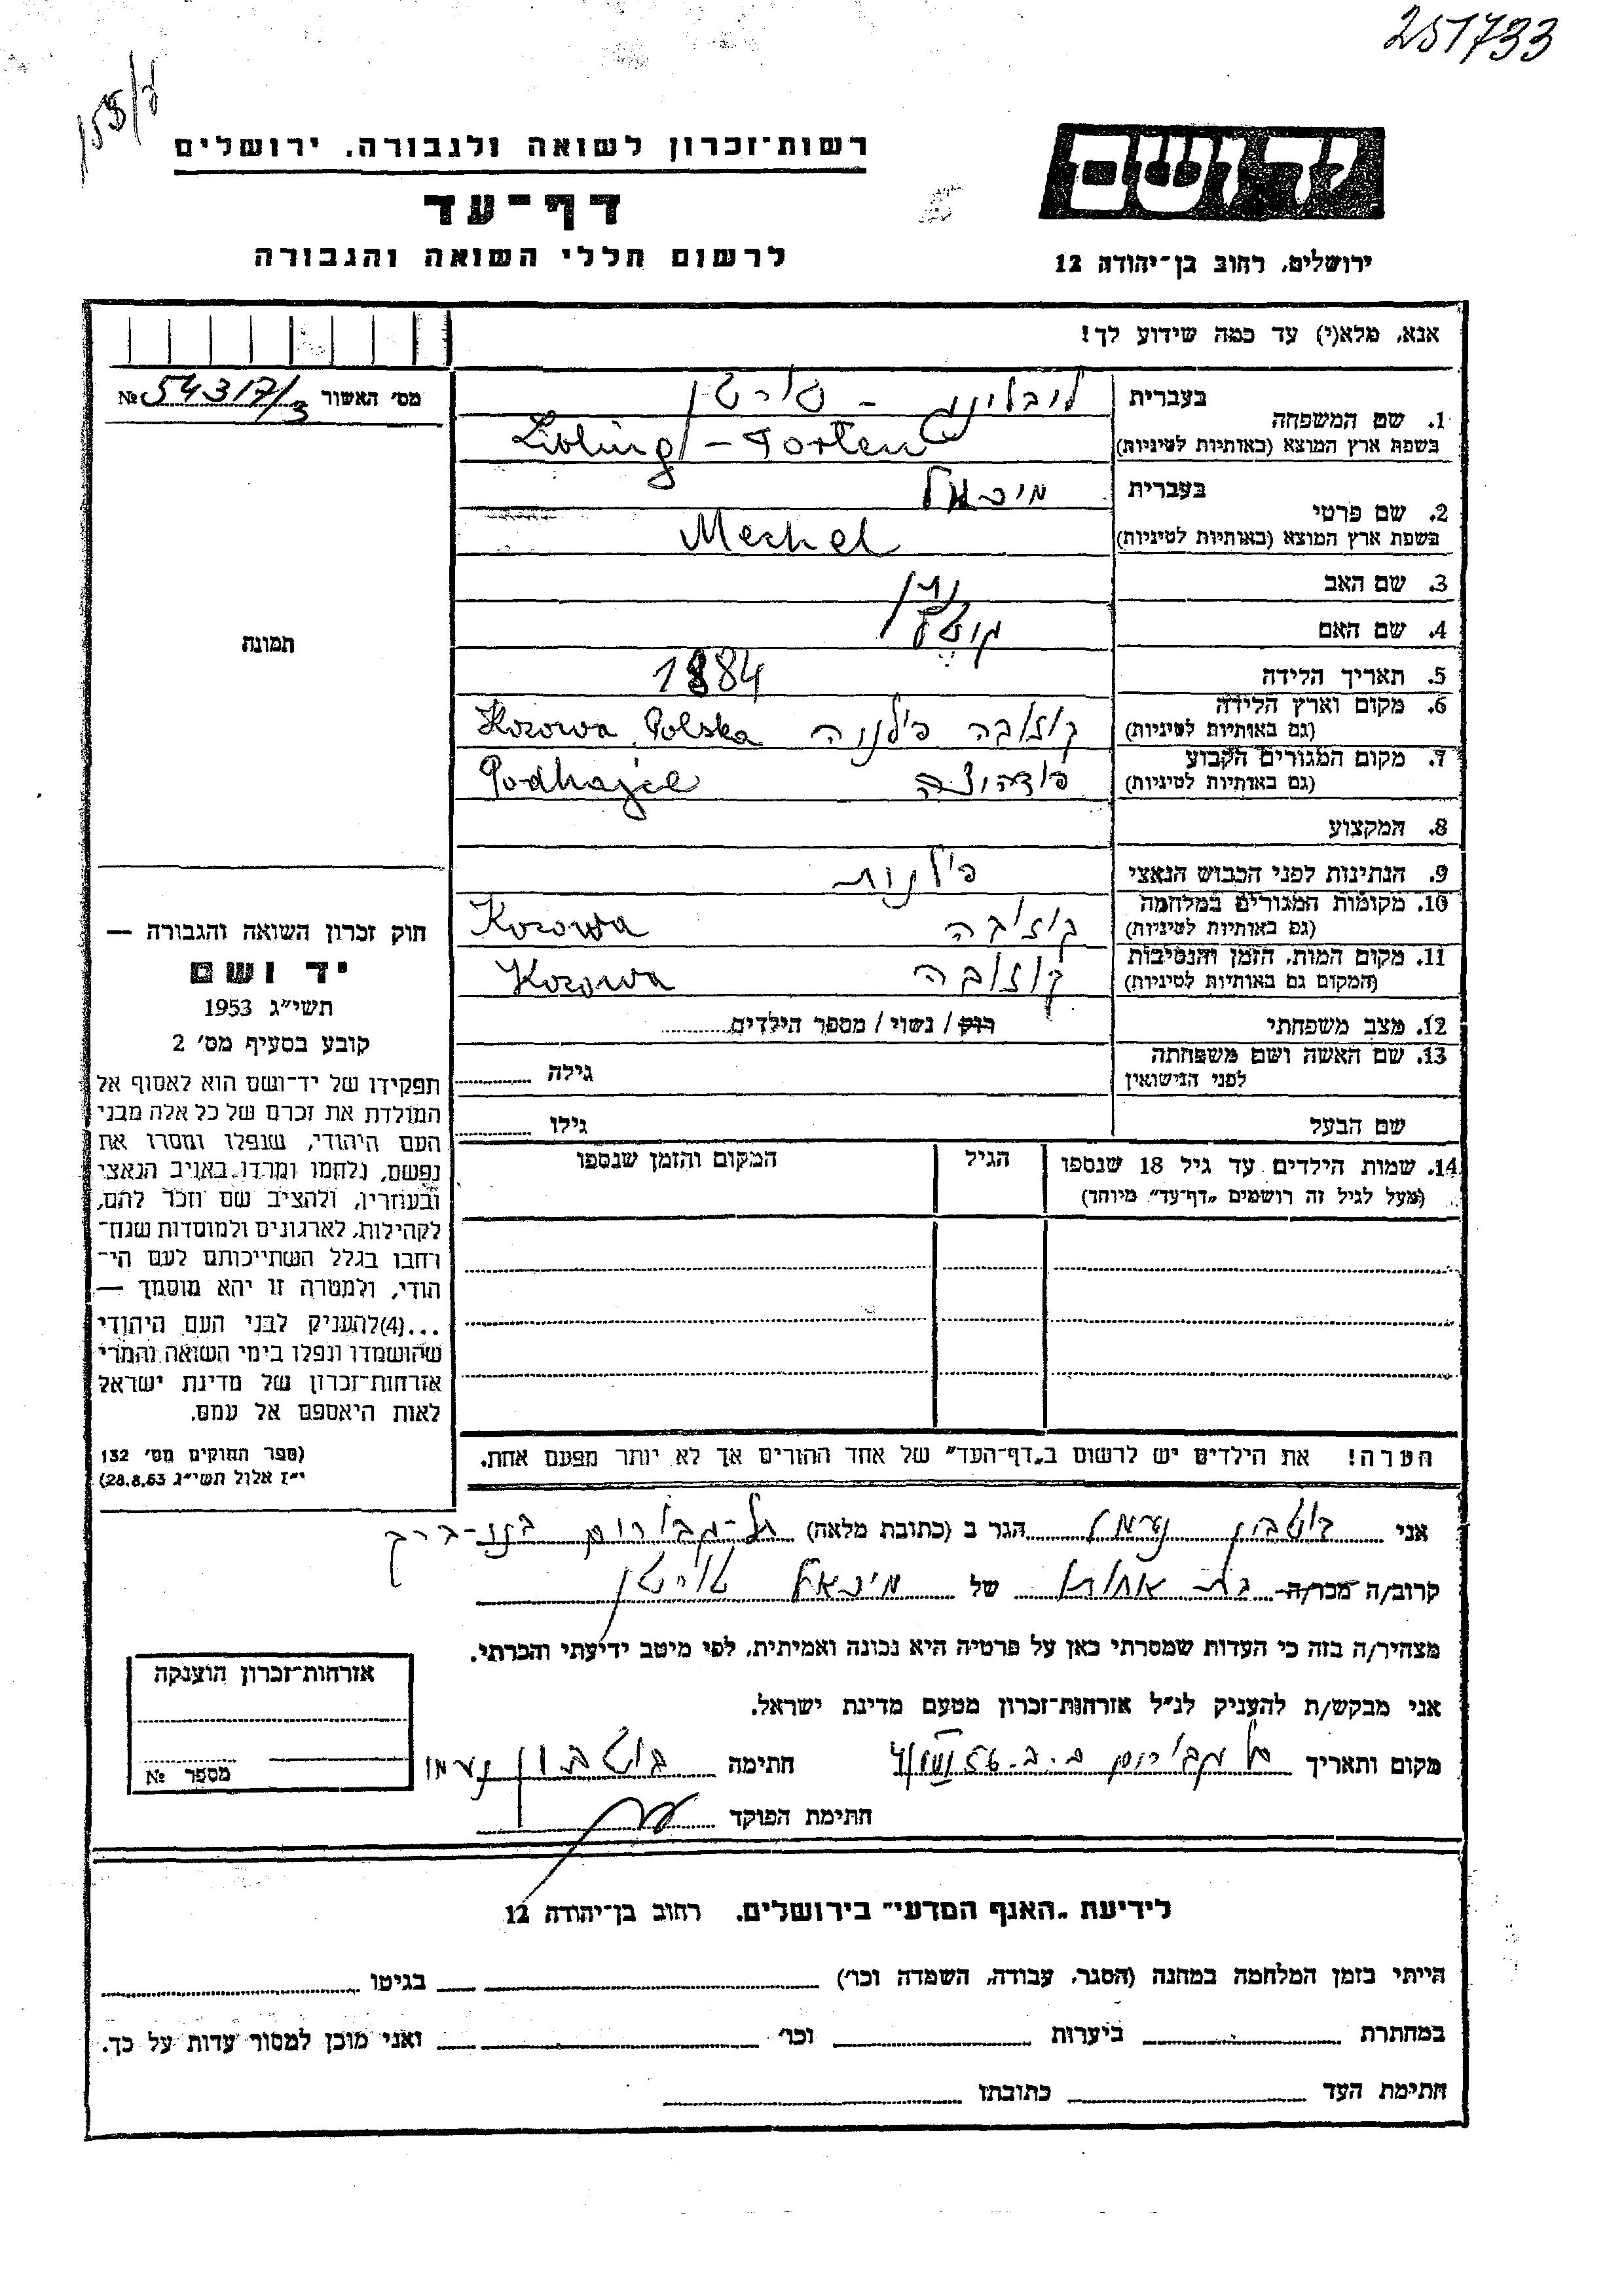 251733
155/ד
רשות־זכרון לשואה ולגבורה, ירושלים
דף־עד
לרשום חללי השואה והגבורה
יד ושם
ירושלים, רחוב בן־יהודה 12
אנא, מלא(י) עד כמה שידוע לך!
מס׳ האשור № 54317/3
בעברית
1. שם המשפחה
בשפת ארץ המוצא (באותיות לטיניות)
ליבלינג - טורטן
Libling - Torten
בעברית
2. שם פרטי
בשפת ארץ המוצא (באותיות לטיניות)
מיכאל
Mechel
3. שם האב
נתן
4. שם האם
5. תאריך הלידה 1884
6. מקום וארץ הלידה
(גם באותיות לטיניות)
קוזובה פולניה Kozowa, Polska
7. מקום המגורים הקבוע
(גם באותיות לטיניות)
פודהיצה Podhajce
8. המקצוע
9. הנתינות לפני הכבוש הנאצי פולנית
10. מקומות המגורים במלחמה
(גם באותיות לטיניות)
קוזובה Kozowa
11. מקום המות, הזמן והנסיבות
(המקום גם באותיות לטיניות)
קוזובה Kozowa
12. מצב משפחתי רווק / נשוי / מספר הילדים
13. שם האשה ושם משפחתה
לפני הנישואין
גילה
שם הבעל גילו
14. שמות הילדים עד גיל 18 שנספו
(מעל לגיל זה רושמים „דף־עד״ מיוחד)
הגיל
המקום והזמן שנספו
הערה! את הילדים יש לרשום ב„דף־העד״ של אחד ההורים אך לא יותר מפעם אחת.
תמונה
חוק זכרון השואה והגבורה —
יד ושם
תשי״ג 1953
קובע בסעיף מס׳ 2
תפקידו של יד־ושם הוא לאסוף אל
המולדת את זכרם של כל אלה מבני
העם היהודי, שנפלו ומסרו את
נפשם, נלחמו ומרדו באויב הנאצי
ובעוזריו, ולהציב שם וזכר להם,
לקהילות, לארגונים ולמוסדות שנח־
רחבו בגלל השתייכותם לעם הי־
הודי, ולמטרה זו יהא מוסמך —
...(4)להעניק לבני העם היהודי
שהושמדו ונפלו בימי השואה והמרי
אזרחות־זכרון של מדינת ישראל
לאות היאספם אל עמם.
(ספר החוקים מס׳ 132
י״ז אלול תשי״ג 28.8.53)
אני גוטבין נעמי הגר ב (כתובת מלאה) תל-גבורים בני-ברק
קרוב/ה מכר/ה בת אחותו של מיכאל טורטן
מצהיר/ה בזה כי העדות שמסרתי כאן על פרטיה היא נכונה ואמיתית, לפי מיטב ידיעתי והכרתי.
אני מבקש/ת להעניק לנ״ל אזרחות־זכרון מטעם מדינת ישראל.
מקום ותאריך תל גבורים ב.ב. חתימה נעמי
חתימת הפוקד
אזרחות־זכרון הוענקה
מספר №
לידיעת „האגף המדעי״ בירושלים, רחוב בן־יהודה 12
הייתי בזמן המלחמה במחנה (הסגר, עבודה, השמדה וכו׳) בגיטו
במחתרת ביערות וכו׳ ואני מוכן למסור עדות על כך.
חתימת העד כתובתו